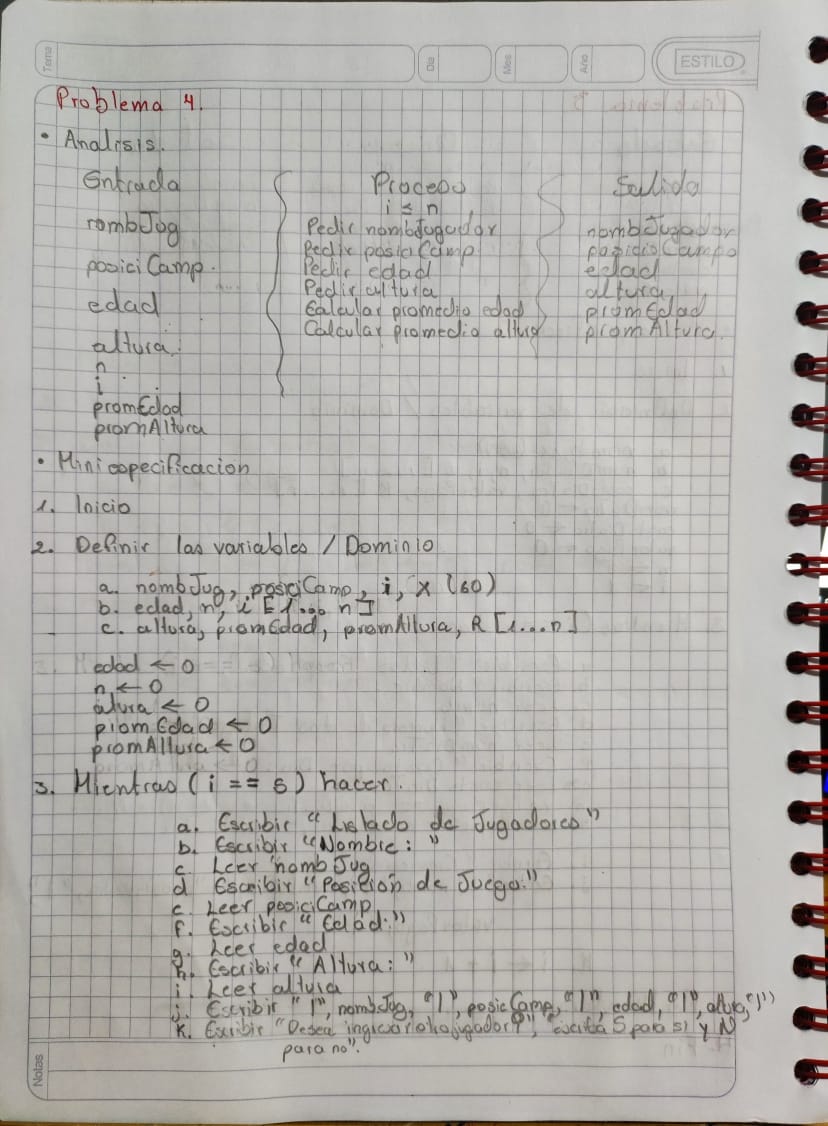 Tema
Dia
Mes
Año
ESTILO
Problema 4.
• Analisis.
Entrada
nombJug
posiciCamp.
edad
altura.
n
i
promEdad
promAltura
Proceso
i ≤ n
Pedir nombJugador
Pedir posiciCamp
Pedir edad
Pedir altura
Calcular promedio edad
Calcular promedio altura
Salida
nombJugador
posicioCampo
edad
altura
promEdad
promAltura.
• Miniespecificacion
1. Inicio
2. Definir las variables / Dominio
a. nombJug, posiciCamp, i, X (60)
b. edad, n, i E [1... n]
c. altura, promEdad, promAltura, R [1...n]
edad ← 0
n ← 0
altura ← 0
promEdad ← 0
promAltura ← 0
3. Mientras (i == s) hacer.
a. Escribir "Listado de Jugadores"
b. Escribir "Nombre: "
c Leer nombJug
d Escribir "Posicion de Juego:"
e. Leer posiciCamp
f. Escribir "Edad:"
g. Leer edad
h. Escribir "Altura: "
i. Leer altura
j. Escribir "|", nombJug, "|", posicCamp, "|", edad, "|", altura, "|")
k. Escribir "Desea ingresar otro jugador?", "escriba S para si y N
para no".
Notas